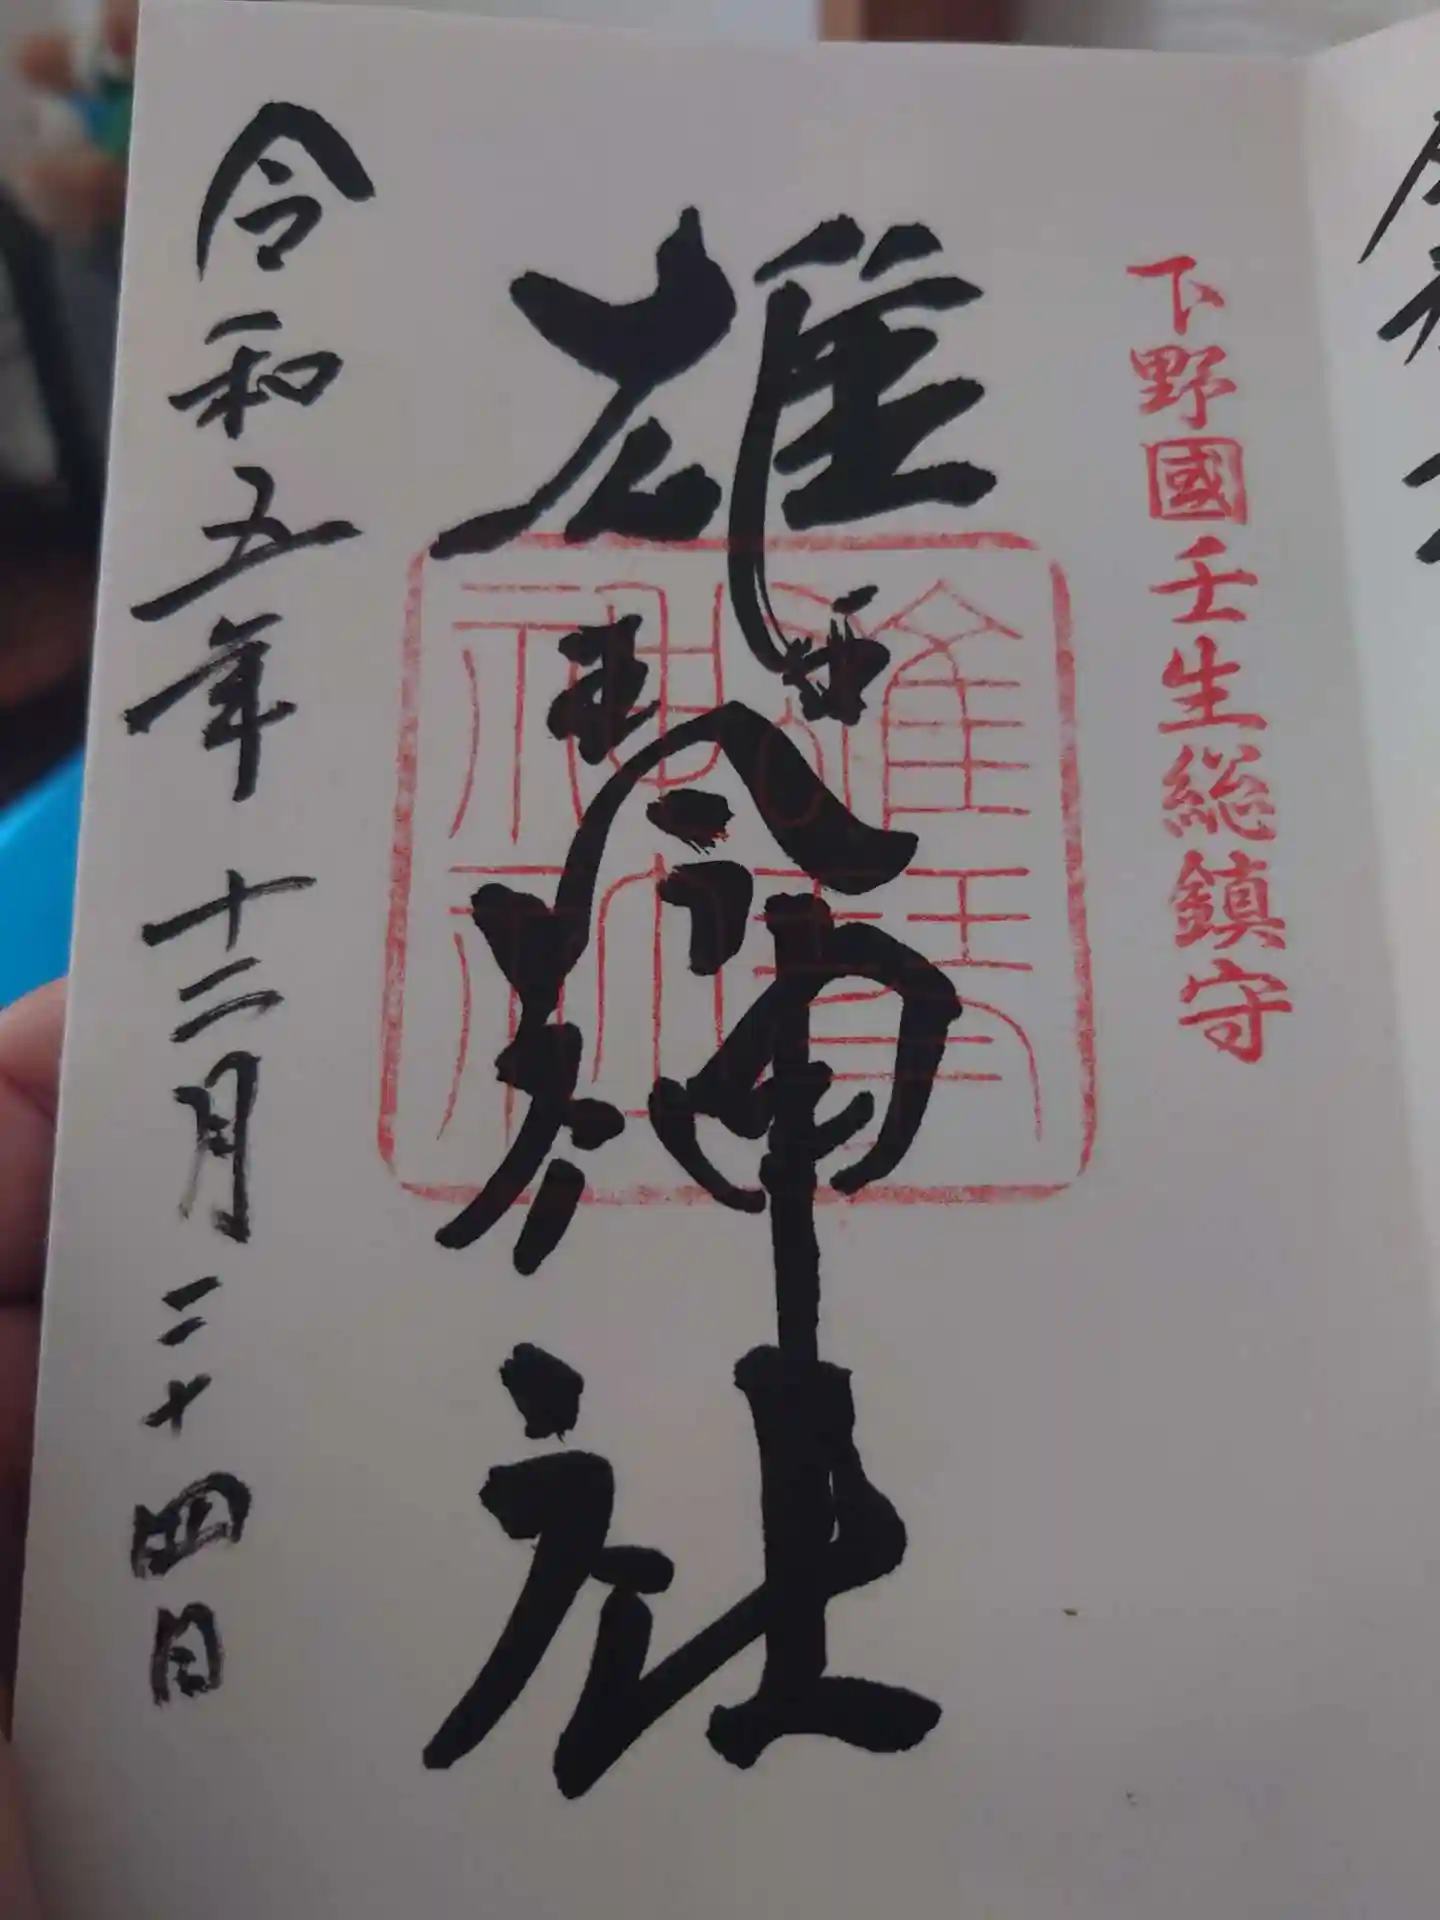 下野國壬生総鎮守
雄琴神社
雄琴神社
令和五年十二月二十四日